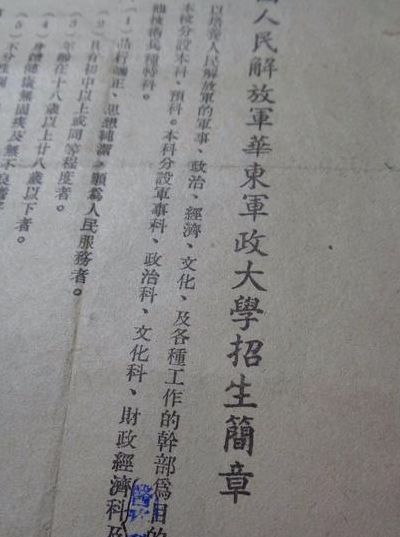 國人民解放軍華東軍政大學招生簡章
以培養人民解放軍的軍事、政治、經濟、文化、及各種工作的幹部爲目的
本校分設本科、預科。本科分設軍事科、政治科、文化科、財政經濟科及
他技術兵種特科。
(1)品行端正、思想純潔、願爲人民服務者。
(2)具有初中以上或同等程度者。
(3)年齡在十八歲以上廿八歲以下者。
(4)身體健康無固疾及無不良嗜好
(5)不分性別